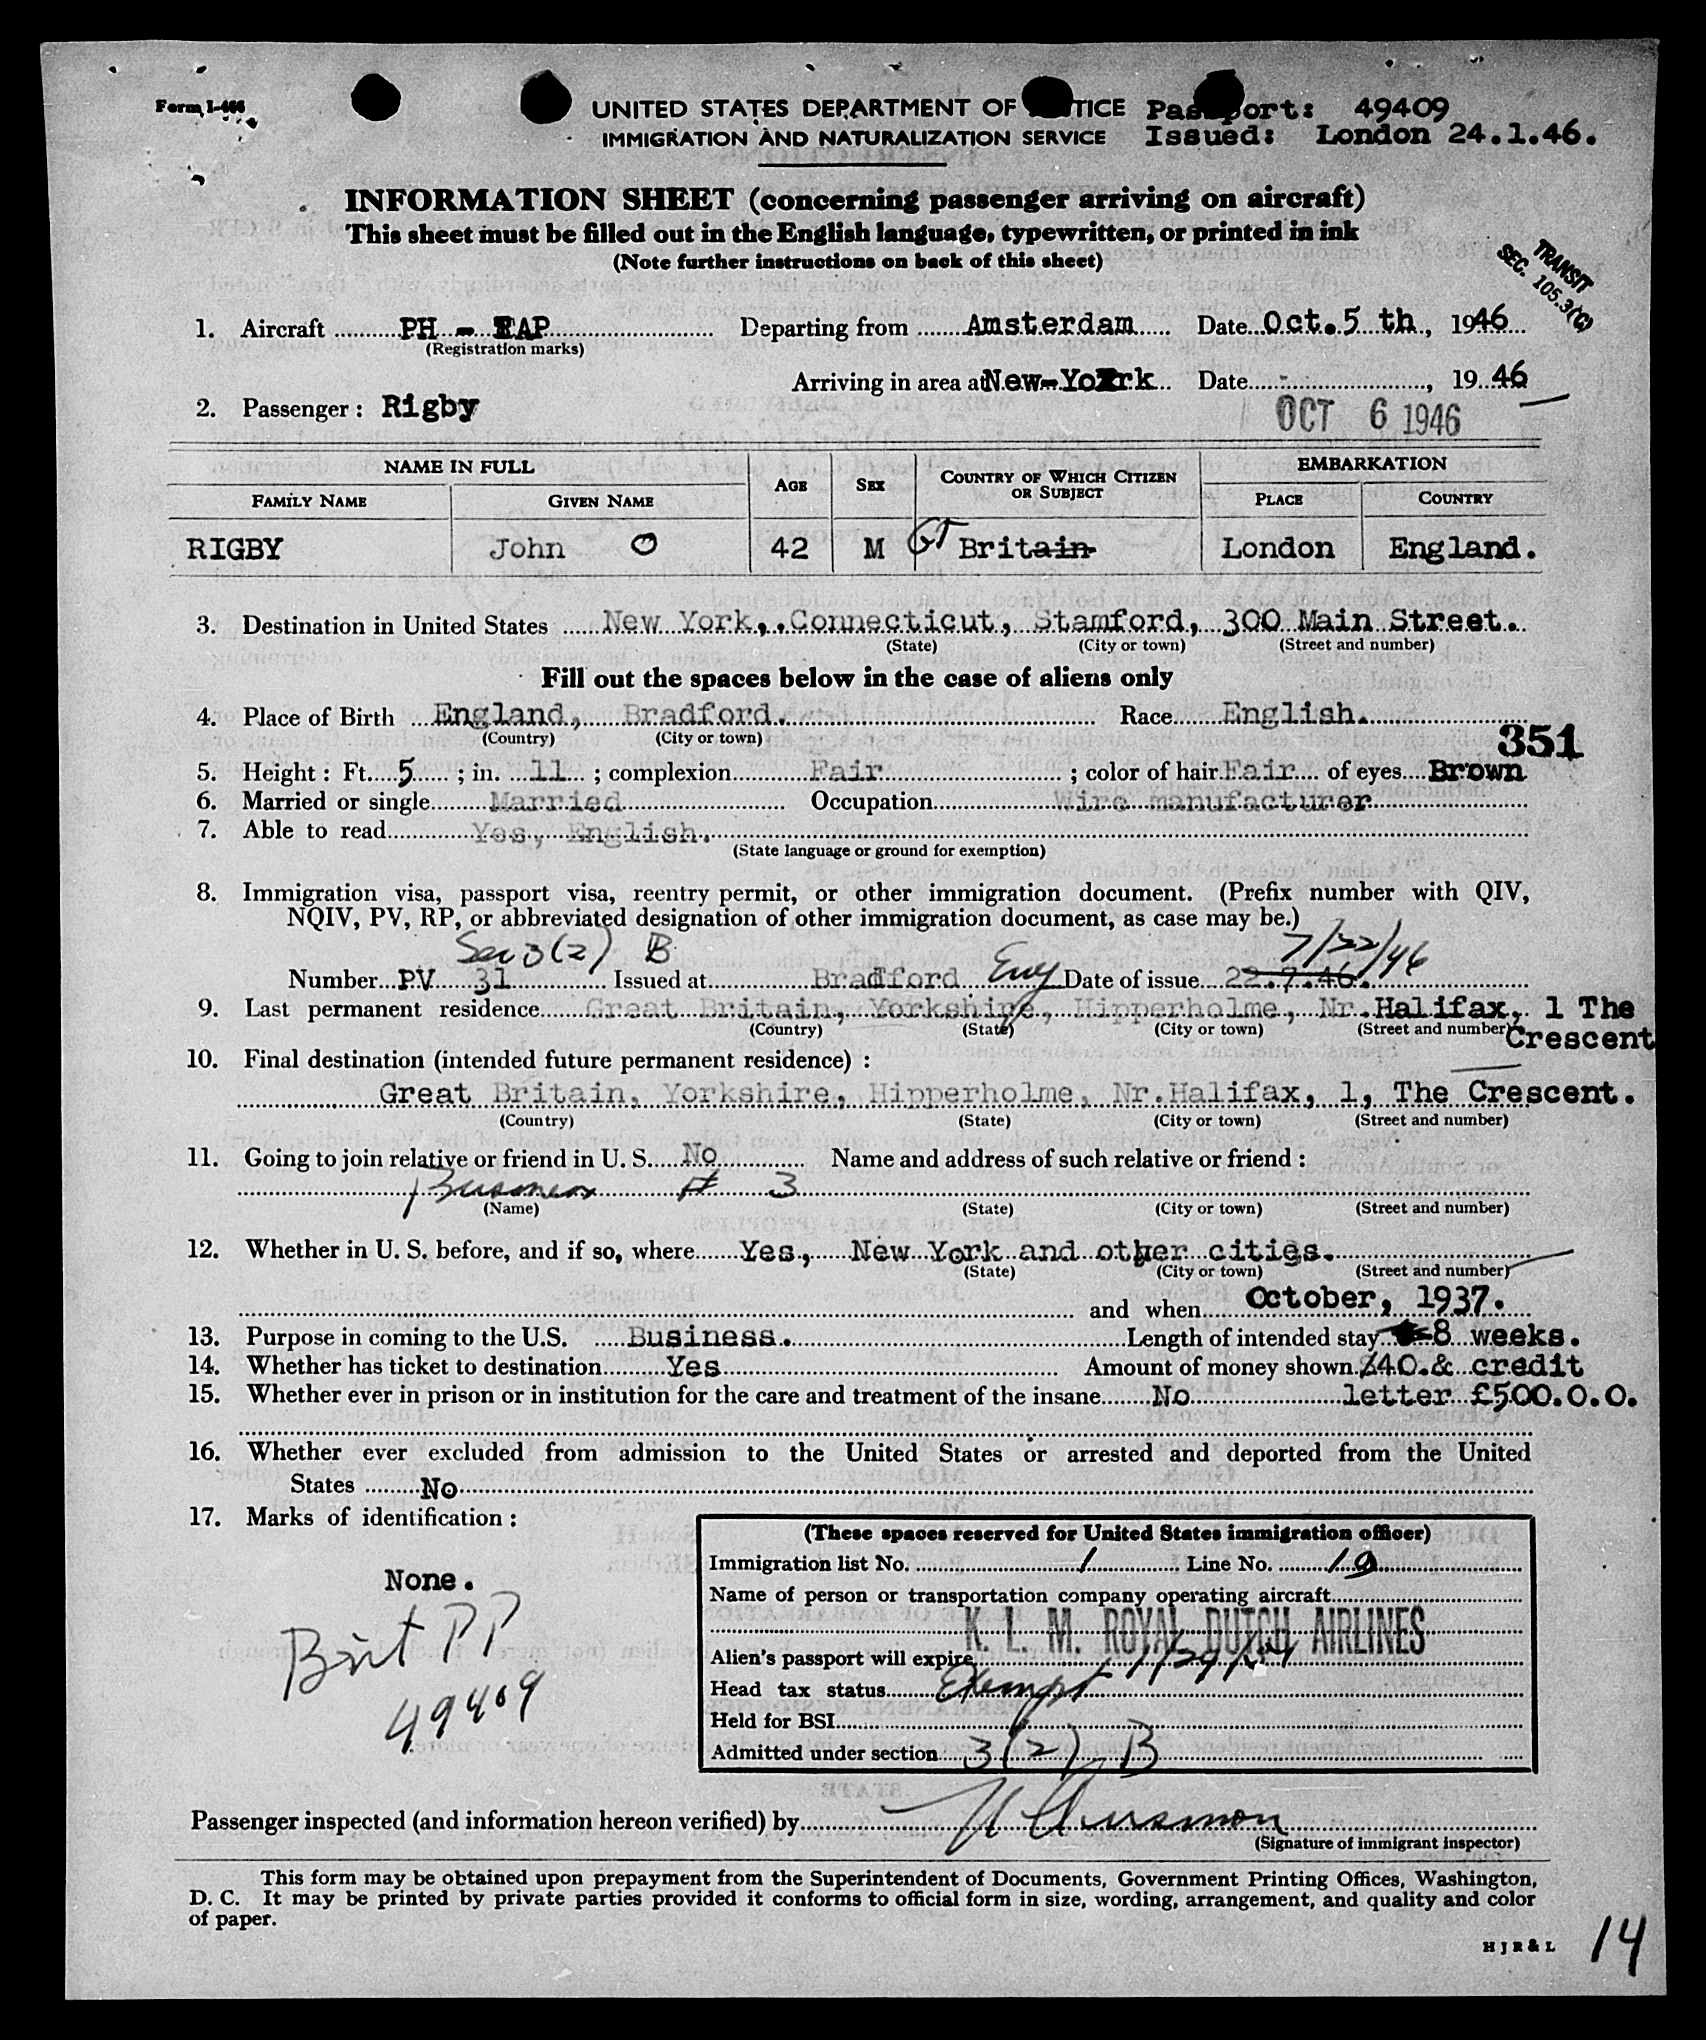 Form I-466
UNITED STATES DEPARTMENT OF TICE Passport: 49409
IMMIGRATION AND NATURALIZATION SERVICE Issued: London 24.1.46.
INFORMATION SHEET (concerning passenger arriving on aircraft)
This sheet must be filled out in the English language, typewritten, or printed in ink
(Note further instructions on back of this sheet)
TRANSIT
SEC. 105.3(C)
1. Aircraft PH - TAP Departing from Amsterdam Date Oct. 5 th, 1946
(Registration marks)
Arriving in area at New-York Date , 19 46
2. Passenger: Rigby OCT 6 1946
NAME IN FULL AGE SEX COUNTRY OF WHICH CITIZEN OR SUBJECT EMBARKATION
FAMILY NAME GIVEN NAME PLACE COUNTRY
RIGBY John O 42 M GT Britain London England.
3. Destination in United States New York, Connecticut, Stamford, 300 Main Street.
(State) (City or town) (Street and number)
Fill out the spaces below in the case of aliens only
4. Place of Birth England, Bradford. Race English.
(Country) (City or town)
351
5. Height: Ft. 5 ; in. 11 ; complexion Fair ; color of hair Fair of eyes Brown
6. Married or single Married Occupation Wire manufacturer
7. Able to read Yes, English.
(State language or ground for exemption)
8. Immigration visa, passport visa, reentry permit, or other immigration document. (Prefix number with QIV,
NQIV, PV, RP, or abbreviated designation of other immigration document, as case may be.)
Sec 3(2) B 7/22/46
Number PV 31 Issued at Bradford Eng Date of issue 22.7.46.
9. Last permanent residence Great Britain, Yorkshire, Hipperholme, Nr. Halifax, 1 The
(Country) (State) (City or town) (Street and number) Crescent
10. Final destination (intended future permanent residence) :
Great Britain, Yorkshire, Hipperholme, Nr.Halifax, 1, The Crescent.
(Country) (State) (City or town) (Street and number)
11. Going to join relative or friend in U. S. No Name and address of such relative or friend :
Business # 3
(Name) (State) (City or town) (Street and number)
12. Whether in U. S. before, and if so, where Yes, New York and other cities.
(State) (City or town) (Street and number)
and when October, 1937.
13. Purpose in coming to the U.S. Business. Length of intended stay 8 weeks.
14. Whether has ticket to destination Yes Amount of money shown $40.& credit
15. Whether ever in prison or in institution for the care and treatment of the insane No letter £500.0.0.
16. Whether ever excluded from admission to the United States or arrested and deported from the United
States No
17. Marks of identification :
None.
Brit PP
49409
(These spaces reserved for United States immigration officer)
Immigration list No. 1 Line No. 19
Name of person or transportation company operating aircraft
K. L. M. ROYAL DUTCH AIRLINES
Alien's passport will expire
Head tax status Exempt
Held for BSI
Admitted under section 3(2) B
Passenger inspected (and information hereon verified) by
(Signature of immigrant inspector)
This form may be obtained upon prepayment from the Superintendent of Documents, Government Printing Offices, Washington,
D. C. It may be printed by private parties provided it conforms to official form in size, wording, arrangement, and quality and color
of paper.
H J R & L 14